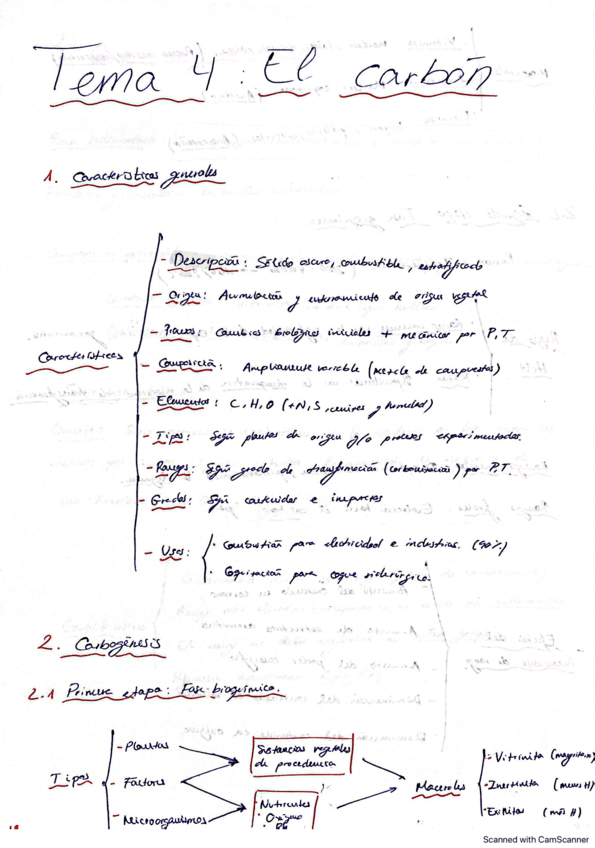 Tema 4: El carbón
1. Características generales
- Descripción: Sólido oscuro, combustible, estratificado
- Origen: Acumulación y enterramiento de origen vegetal
- Proceso: Cambios biológicos iniciales + mecánicos por P,T.
Características
- Composición: Ampliamente variable (Mezcla de compuestos)
- Elementos: C, H, O (+N, S, cenizas y humedad)
- Tipos: Según plantas de origen y/o procesos experimentados.
- Rangos: Según grado de transformación (carbonización) por P.T.
- Grados: Según contenidos e impurezas
- Usos:
· Combustión para electricidad e industrias. (90%)
· Coquización para coque siderúrgico.
2. Carbogénesis
2.1 Primera etapa: Fase bioquímica.
Tipos
- Plantas
- Factores
- Microorganismos
Sustancias vegetales
de procedencia
· Nutrientes
· Oxígeno
Macerales
- Vitrinita
- Inertinita (menos H)
- Exinita (más H)
Scanned with CamScanner